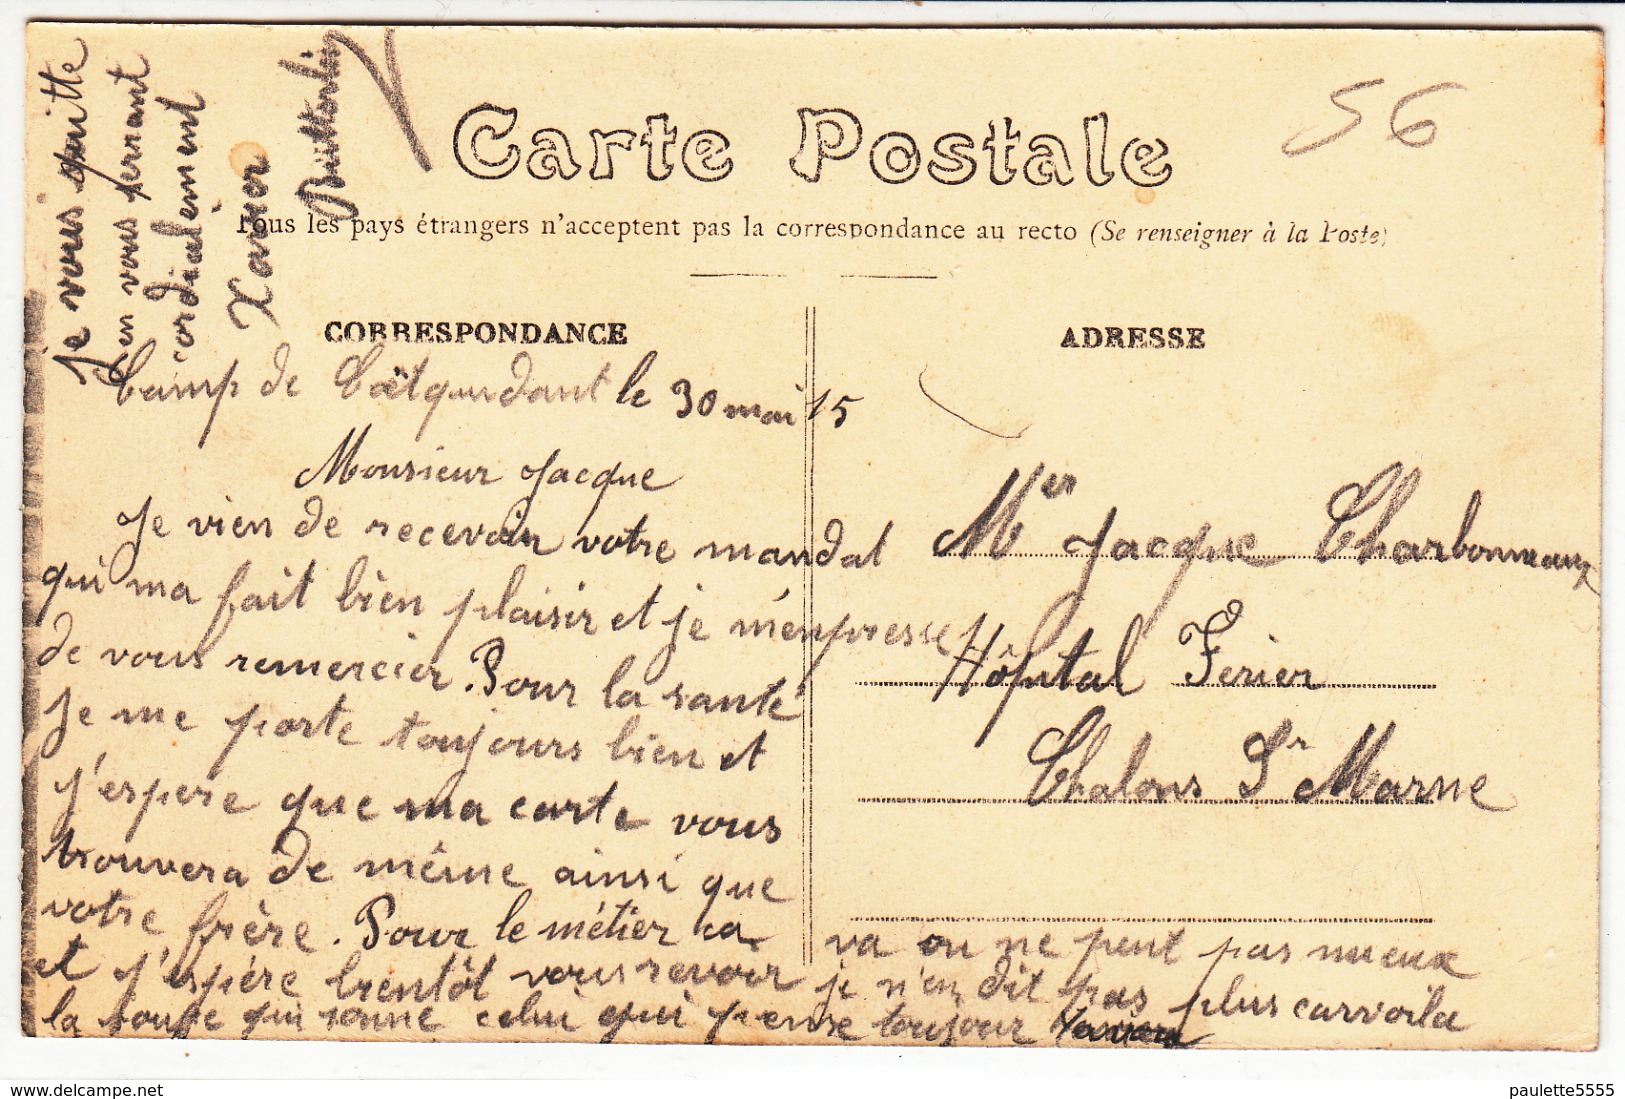 Carte Postale
56
Tous les pays étrangers n'acceptent pas la correspondance au recto (Se renseigner à la Poste)
CORRESPONDANCE
ADRESSE
Camp de Coëtquidant le 30 mai 15
Monsieur Jacque
Je vien de recevoir votre mandat
qui ma fait bien plaisir et je m'enpresse
de vous remercier. Pour la santé
je me porte toujours bien et
j'espere que ma carte vous
trouvera de même ainsi que
votre frère. Pour le métier ca va on ne peut pas mieux
et j'espére bientôt vous revoir je n'en dit pas plus carvoila
la soupe qui sonne celui qui pense toujour
Je vous quitte
en vous serrant
cordialement
Xavier
Mer Jacque Charbonneaux
Hôpital Ferier
Chalons Sr Marne
paulette5555